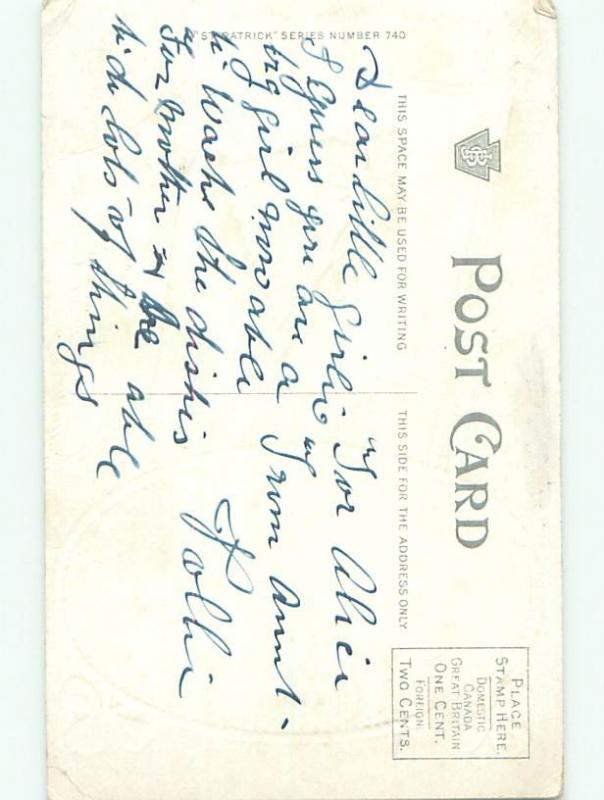 POST CARD
THIS SPACE MAY BE USED FOR WRITING
THIS SIDE FOR THE ADDRESS ONLY
PLACE
STAMP HERE.
DOMESTIC
CANADA
GREAT BRITAIN
ONE CENT.
FOREIGN.
TWO CENTS.
"ST. PATRICK" SERIES NUMBER 740
Dear little girlie
I guess you are a
big girl now able
to washe the dishis
For mother & be able
to do lots of things
"For Alice"
From Aunt-
Pollie